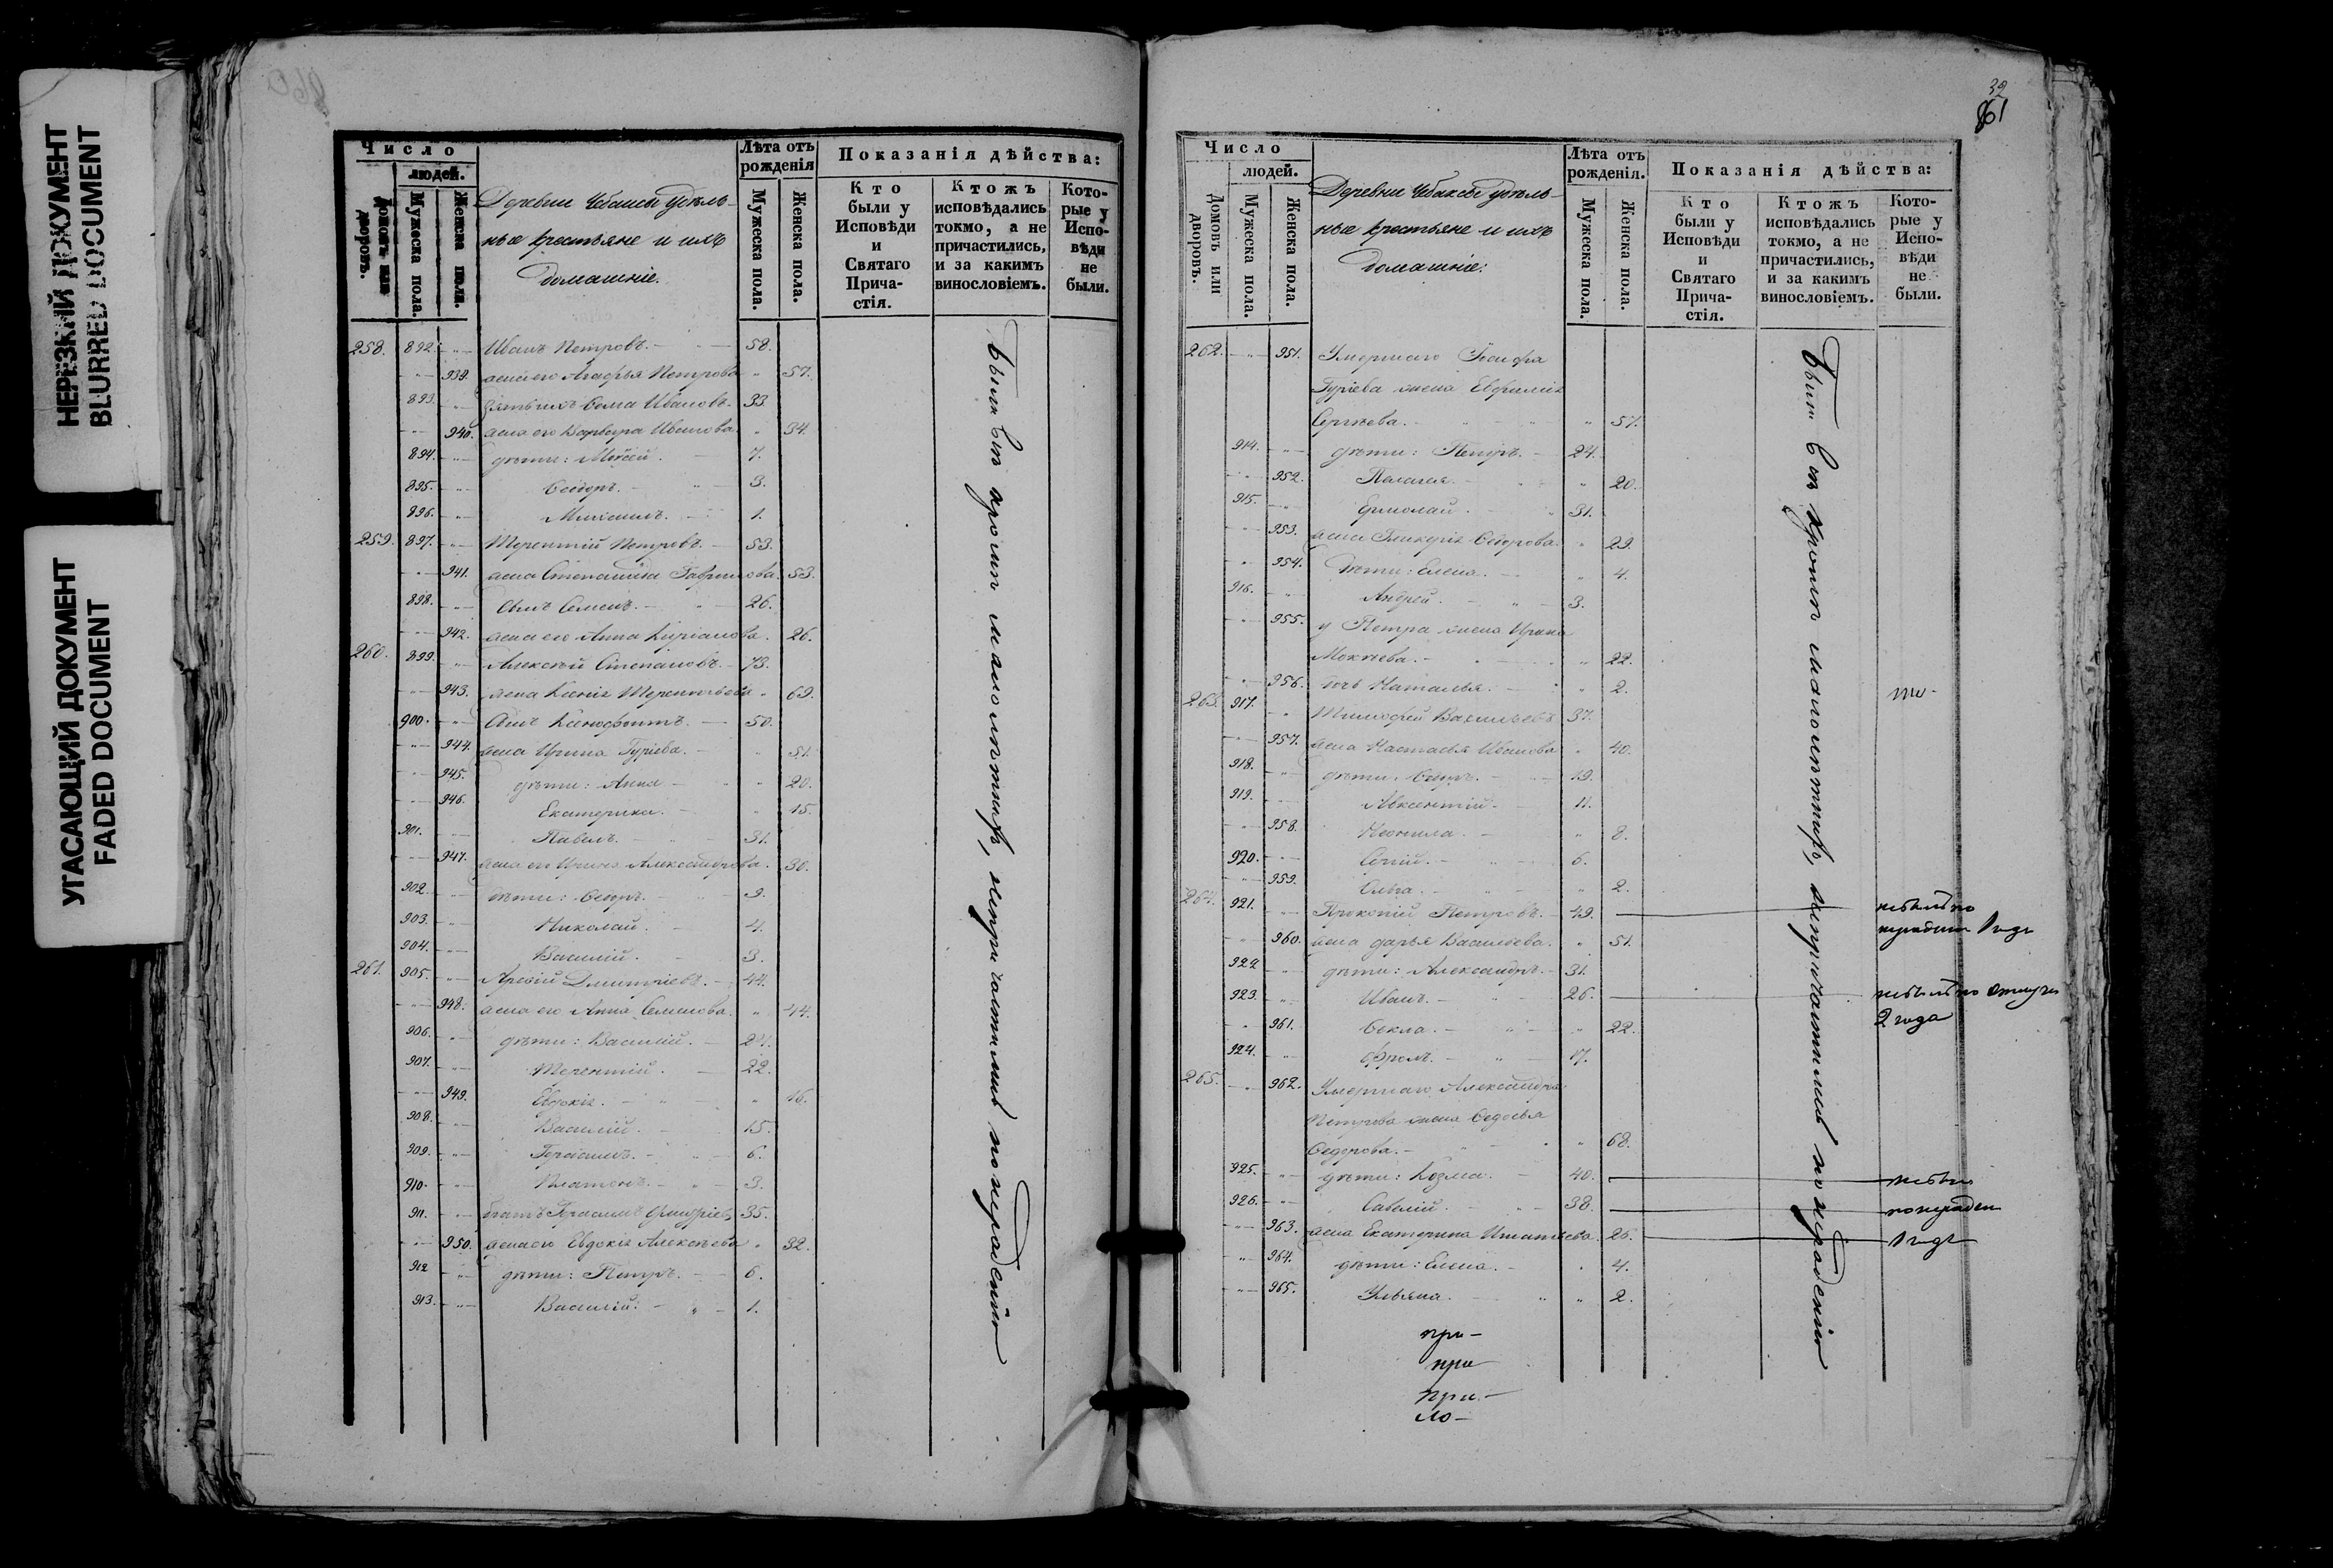 НЕРЕЗКИЙ ДОКУМЕНТ
BLURRED DOCUMENT
УГАСАЮЩИЙ ДОКУМЕНТ
FADED DOCUMENT
860
Число
людей.
Домовъ или дворовъ.
Мужеска пола.
Женска пола.
Деревни Чебаксы удѣль-
ные крестьяне и ихъ
домашніе.
Лѣта отъ рожденія
Мужеска пола.
Женска пола.
Показанія дѣйства:
Кто были у Исповѣди и Святаго Прича-стія.
Ктожъ исповѣдались токмо, а не причастились, и за какимъ винословіемъ.
Кото-рые у Испо-вѣди не были.
258. 892. Иванъ Петровъ. 58.
939. жена его Агафья Петрова 57.
893. зять ихъ Ѳома Ивановъ. 33.
940. жена его Варвара Иванова. 34.
894. дѣти: Моисей. 7.
895. Ѳеодоръ. 3.
896. Михаилъ. 1.
259. 897. Терентій Петровъ. 53.
941. жена Степанида Гаврилова. 53.
898. сынъ Семенъ. 26.
942. жена его Анна Кирианова. 26.
260. 899. Алексѣй Степановъ. 73.
943. жена Ксенія Терентьева 69.
900. сынъ Ксенофонтъ. 50.
944. жена Ирина Гурьева. 51.
945. дѣти: Анна 20.
946. Екатерина. 15.
901. Павелъ. 31.
947. жена его Ирина Александрова. 30.
902. дѣти: Ѳеодоръ. 9.
903. Николай. 4.
904. Василій. 3.
261. 905. Арсеній Дмитріевъ. 44.
948. жена его Анна Семенова. 44.
906. дѣти: Василій. 24.
907. Терентій. 22.
949. Евдокія. 16.
908. Василій. 15.
909. Герасимъ. 6.
910. Платонъ. 3.
911. братъ Герасимъ Дмитріевъ 35.
950. жена его Евдокія Алексѣева 32.
912. дѣти: Петръ. 6.
913. Василій. 1.
Были всѣ кромѣ малолѣтнихъ, непричастились по нерадѣнію
32
861
Число
людей.
Домовъ или дворовъ.
Мужеска пола.
Женска пола.
Деревни Чебаксы удѣль-
ные крестьяне и ихъ
домашніе.
Лѣта отъ рожденія.
Мужеска пола.
Женска пола.
Показанія дѣйства:
Кто были у Исповѣди и Святаго Прича-стія.
Ктожъ исповѣдались токмо, а не причастились, и за какимъ винословіемъ.
Кото-рые у Испо-вѣди не были.
262. 951. Умершаго
Гуріева жена Евфимія
Сергѣева. 57.
914. дѣти: Петръ. 24.
952. Палагея. 20.
915. Ермолай. 31.
953. жена Гликерія Ѳеодорова. 29.
954. дѣти: Елена. 4.
916. Андрей. 3.
955. у Петра жена Ирина
Мокѣева. 22.
956. дочь Наталья. 2.
263. 917. Тимофей Васильевъ 37.
957. жена Настасья Иванова 40.
918. дѣти: Ѳеодоръ. 19.
919. Авксентій. 11.
958. Неонила. 8.
920. Сергій. 6.
959. Ольга. 2.
264. 921. Прокопій Петровъ. 49. небылъ по
нерадѣнію 1 годъ
960. жена Дарья Васильева. 51.
922. дѣти: Александръ. 31.
923. Иванъ. 26. небылъ по отлучкѣ
2 года
961. Ѳекла. 22.
924. Фролъ. 17.
265. 962. Умершаго Александра
Петрова жена Ѳедосья
Ѳедорова. 68.
925. дѣти: Козма. 40. небыли
926. Савелій. 38. по нерадѣнію
963. жена Екатерина Игнатьева. 26. 1 годъ
964. дѣти: Елена. 4.
965. Ульяна. 2.
Были всѣ кромѣ малолѣтнихъ, непричастились по нерадѣнію
при-
при
при.-
ло-